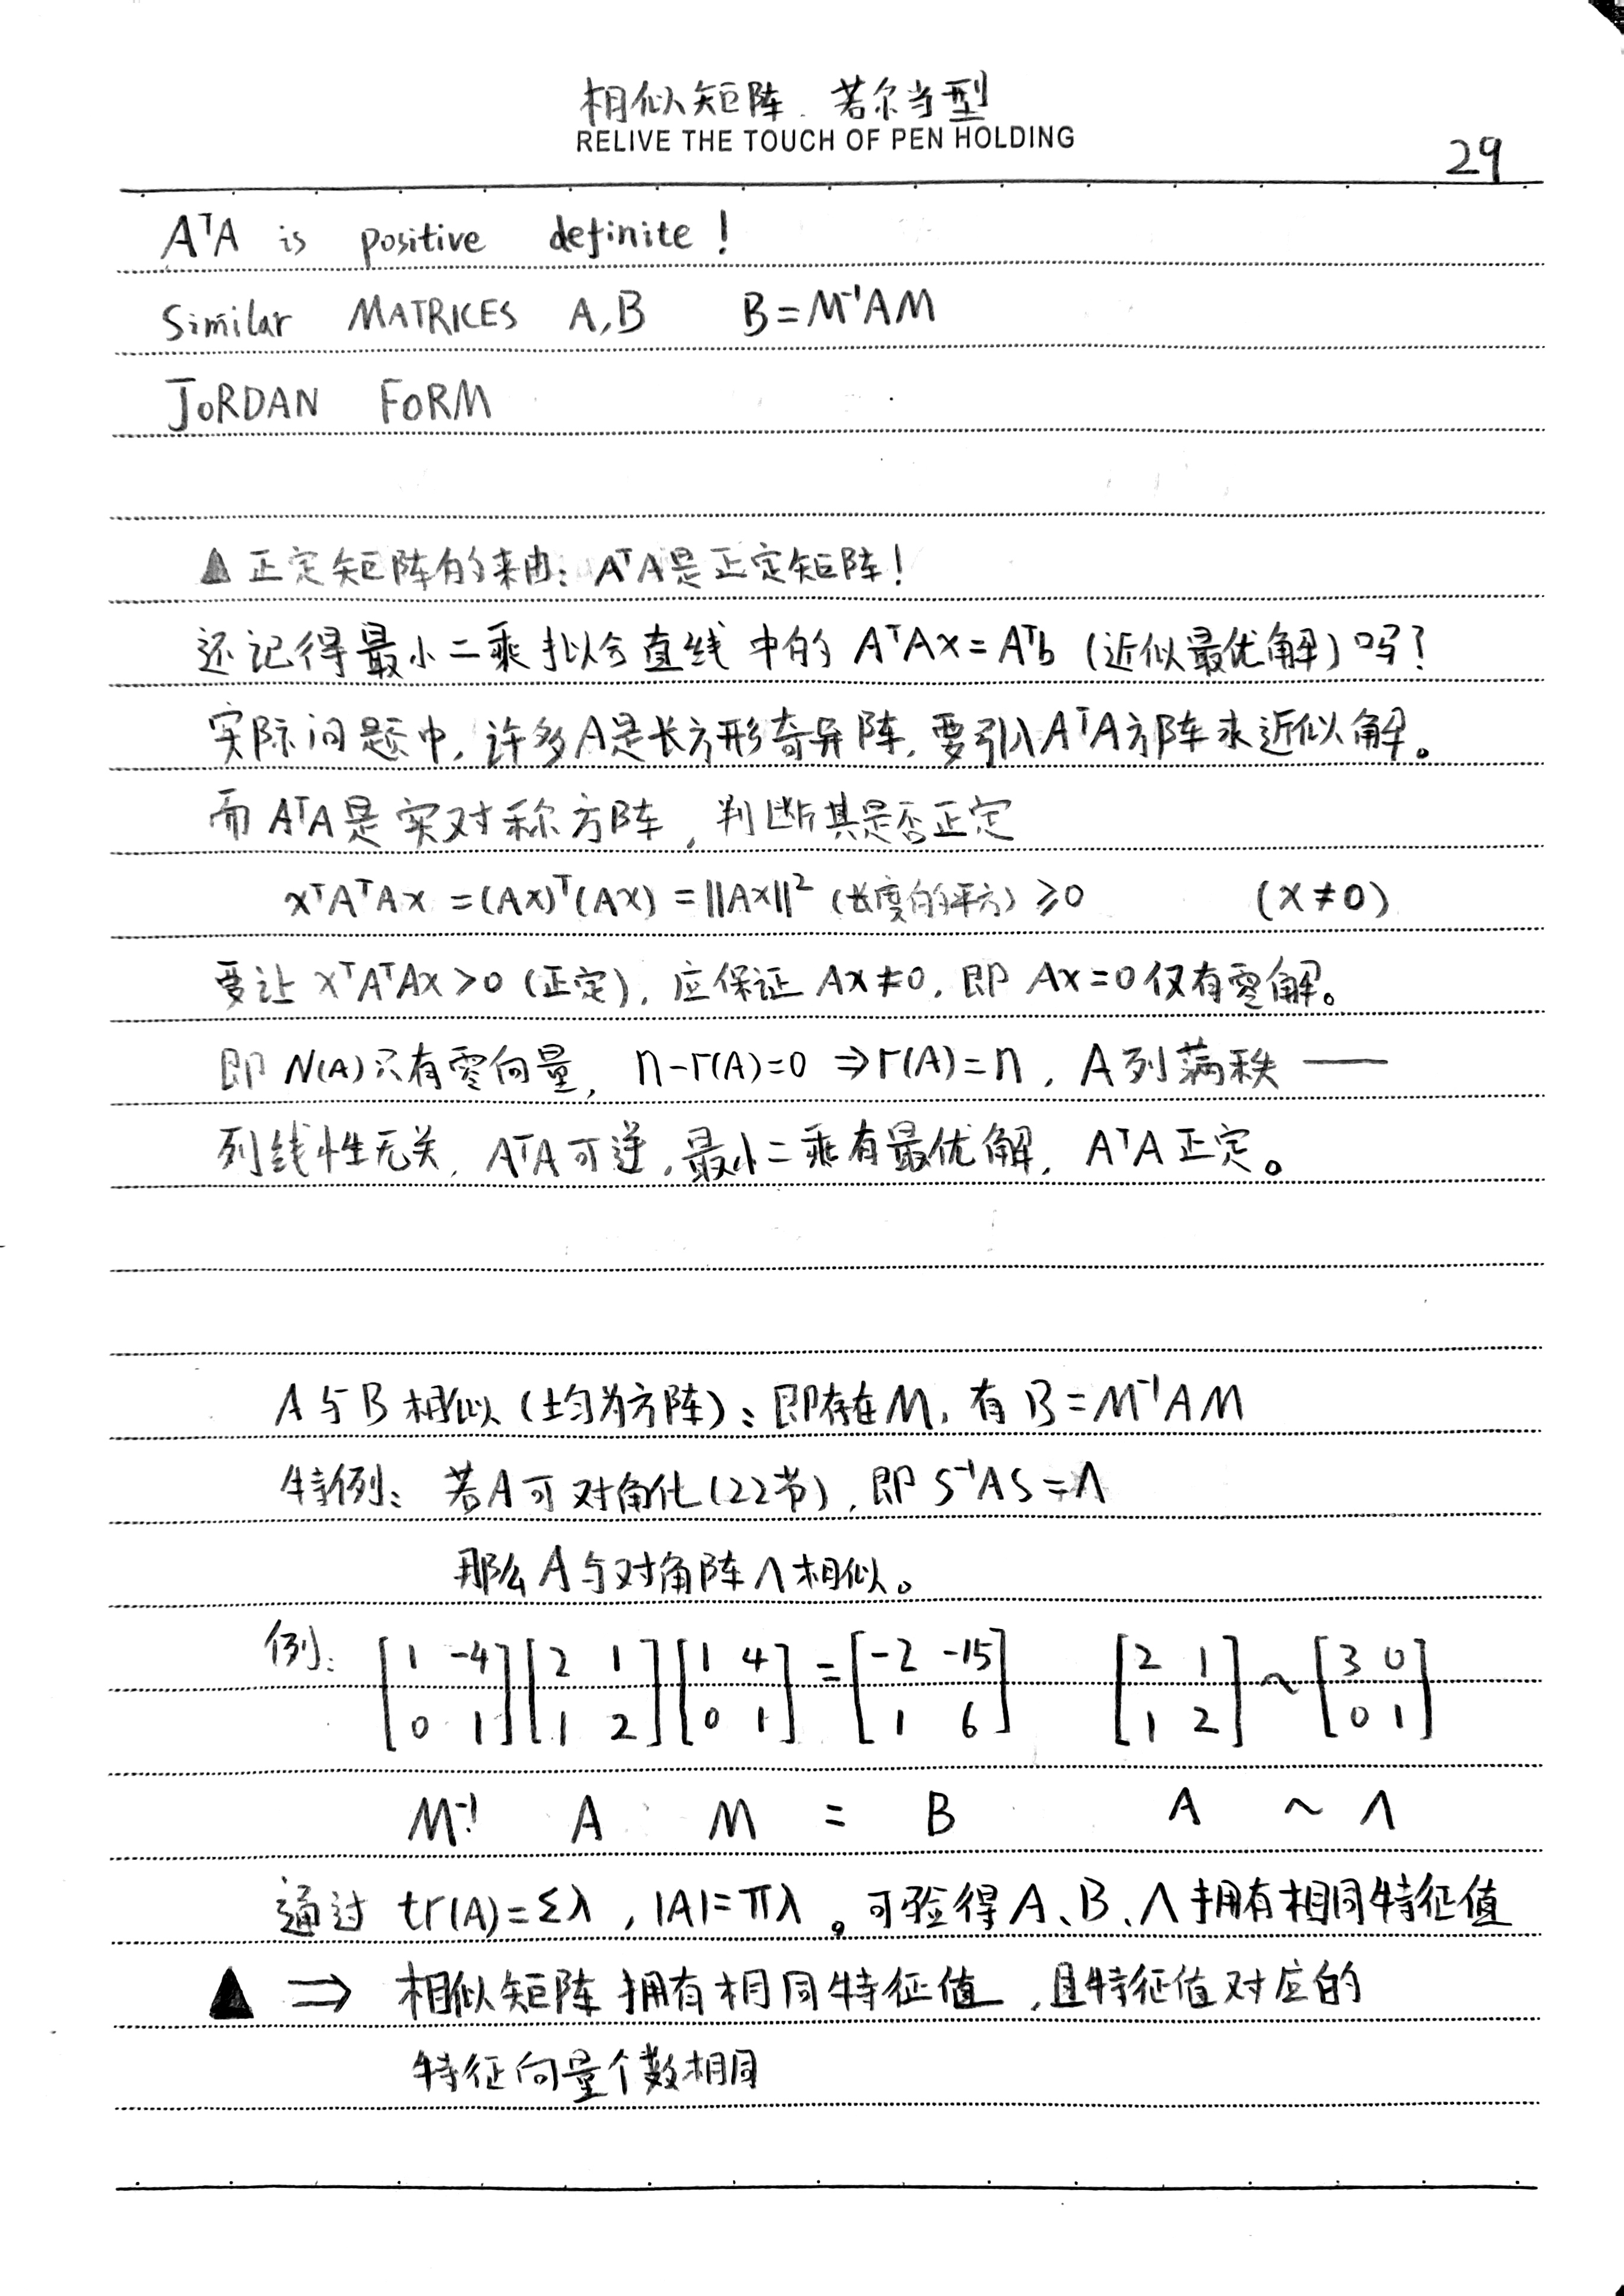 相似矩阵、若尔当型
RELIVE THE TOUCH OF PEN HOLDING
29
AᵀA is positive definite!
Similar MATRICES A,B B=M⁻¹AM
JORDAN FORM
▲正定矩阵的来由：AᵀA是正定矩阵!
还记得最小二乘拟合直线中的 AᵀAx=Aᵀb (近似最优解)吗?
实际问题中, 许多A是长方形奇异阵, 要引入AᵀA方阵求近似解。
而AᵀA是实对称方阵, 判断其是否正定
xᵀAᵀAx =(Ax)ᵀ(Ax) =||Ax||² (长度的平方) ≥0 (x≠0)
要让 xᵀAᵀAx>0 (正定), 应保证 Ax≠0, 即 Ax=0仅有零解。
即 N(A)只有零向量, n-r(A)=0 ⇒r(A)=n, A列满秩 ——
列线性无关, AᵀA可逆, 最小二乘有最优解, AᵀA正定。
A与B相似(均为方阵): 即存在M, 有 B=M⁻¹AM
特例: 若A可对角化(22节), 即 S⁻¹AS=Λ
那么A与对角阵Λ相似。
例: [1 -4; 0 1][2 1; 1 2][1 4; 0 1]=[-2 -15; 1 6] [2 1; 1 2]~[3 0; 0 1]
M⁻¹ A M = B A ~ Λ
通过 tr(A)=Σλ, |A|=πλ。可验得A、B、Λ拥有相同特征值
▲ ⇒ 相似矩阵拥有相同特征值, 且特征值对应的
特征向量个数相同